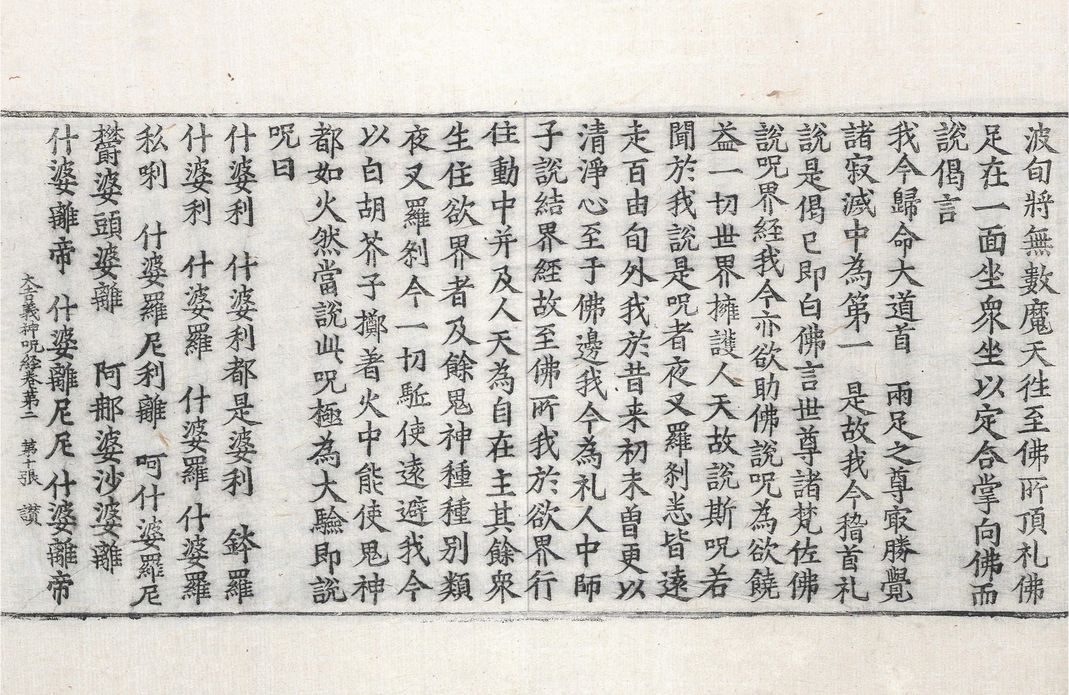 波旬將無數魔天徃至佛所頂礼佛
足在一面坐衆坐以定合掌向佛而
說偈言
我今歸命大道首　兩足之尊㝡勝覺
諸寂滅中為第一　是故我今稽首礼
說是偈已即白佛言世尊諸梵佐佛
說呪界經我今亦欲助佛說呪為欲饒
益一切世界擁護人天故說斯呪若
聞於我說是呪者夜叉羅刹悉皆遠
走百由旬外我於昔来初未曾更以
清淨心至于佛邊我今為礼人中師
子說結界經故至佛所我於欲界行
住動中并及人天為自在主其餘衆
生住欲界者及餘鬼神種種別類
夜叉羅刹今一切駈使遠避我今
以白胡芥子擲著火中能使鬼神
都如火然當說此呪極為大驗即說
呪曰
什婆利　什婆利都是婆利　鉢羅
什婆利　什婆羅　什婆羅什婆羅
私唎　什婆羅尼利離　呵什婆羅尼
欝婆頭婆離　阿那婆沙婆離
什婆離帝　什婆離尼尼什婆離帝
大吉義神呪經卷第二　第十張　讃